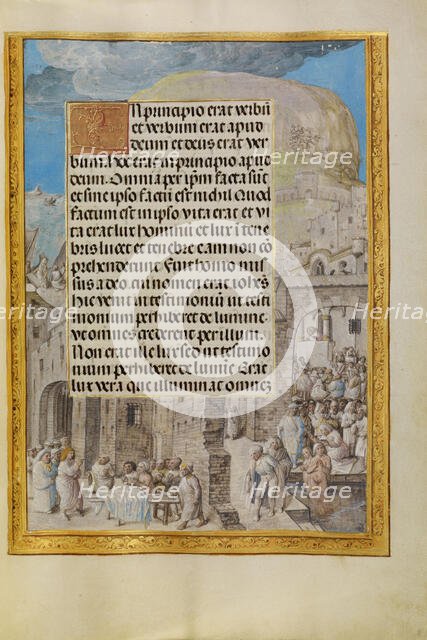 In principio erat verbū
et verbum erat apud
deum et deus erat ver
bum. hoc erat in principio apud
deum. Omnia per ipm̄ facta sūt
et sine ipso factū est nichil Quod
factum est in ipso vita erat et vi
ta erat lux hominū et lux ī tene
bris lucet et tenebre eam non cō
prehenderunt. Fuit homo mis
sus a deo. cui nomen erat iohēs
hic venit in testimoniū ut testi
monium perhiberet de lumine
ut omnes crederent per illum.
Non erat ille lux sed ut testimo
nium perhiberet de lumīe. Erat
lux vera que illuminat omnē
Heritage Heritage Heritage
Heritage Heritage Heritage
Heritage Heritage Heritage